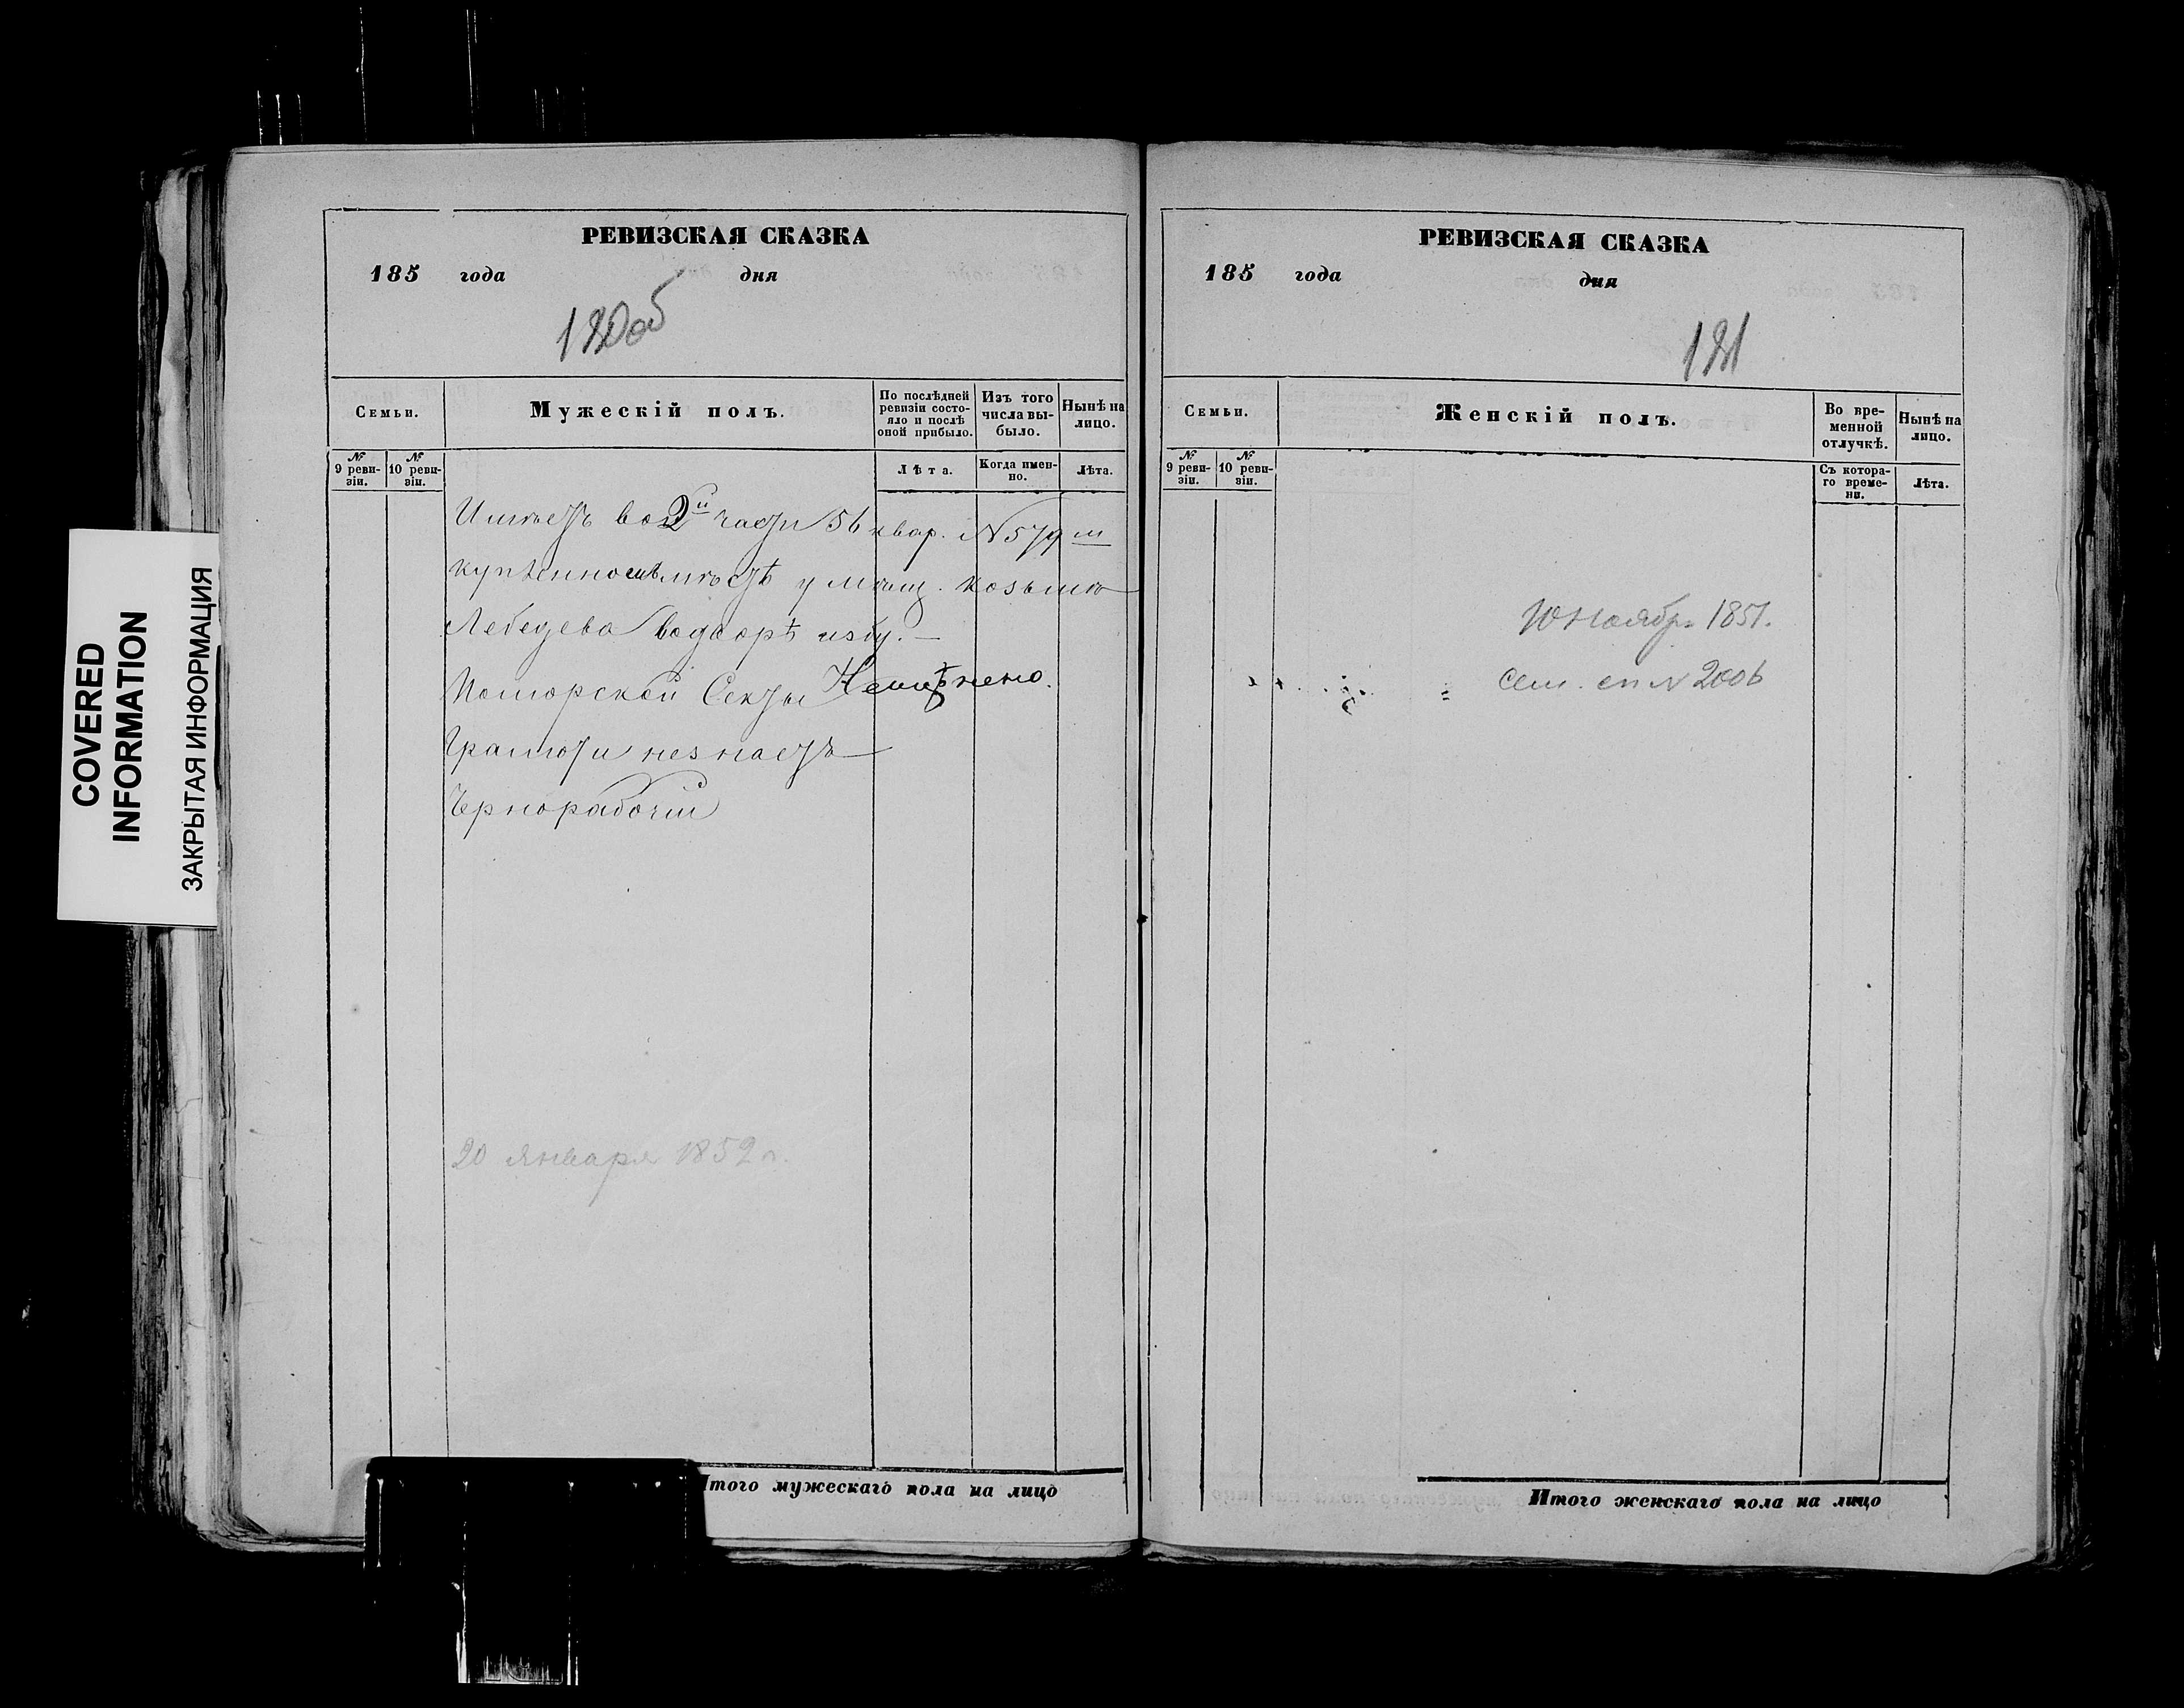 COVERED
INFORMATION
ЗАКРЫТАЯ ИНФОРМАЦИЯ
РЕВИЗСКАЯ СКАЗКА
185 года дня
180об
Семьи.
Мужескій полъ.
По послѣдней ревизіи состояло и послѣ оной прибыло.
Изъ того числа выбыло.
Нынѣ на лицо.
№ 9 ревизіи.
№ 10 ревизіи.
Лѣта.
Когда именно.
Лѣта.
Имѣетъ во 2й части 56 квар. №579м
купленное у мѣщ. Козьмы
Лебедева во дворѣ избу. —
Поморской Секты
Грамоти незнаетъ
Чернорабочій
20 января 1852 г.
Итого мужескаго пола на лицо
РЕВИЗСКАЯ СКАЗКА
185 года дня
181
Семьи.
Женскій полъ.
Во временной отлучкѣ.
Нынѣ на лицо.
№ 9 ревизіи.
№ 10 ревизіи.
Съ котораго времени.
Лѣта.
10 Ноябр. 1851.
Сем. сп № 2006
Итого женскаго пола на лицо